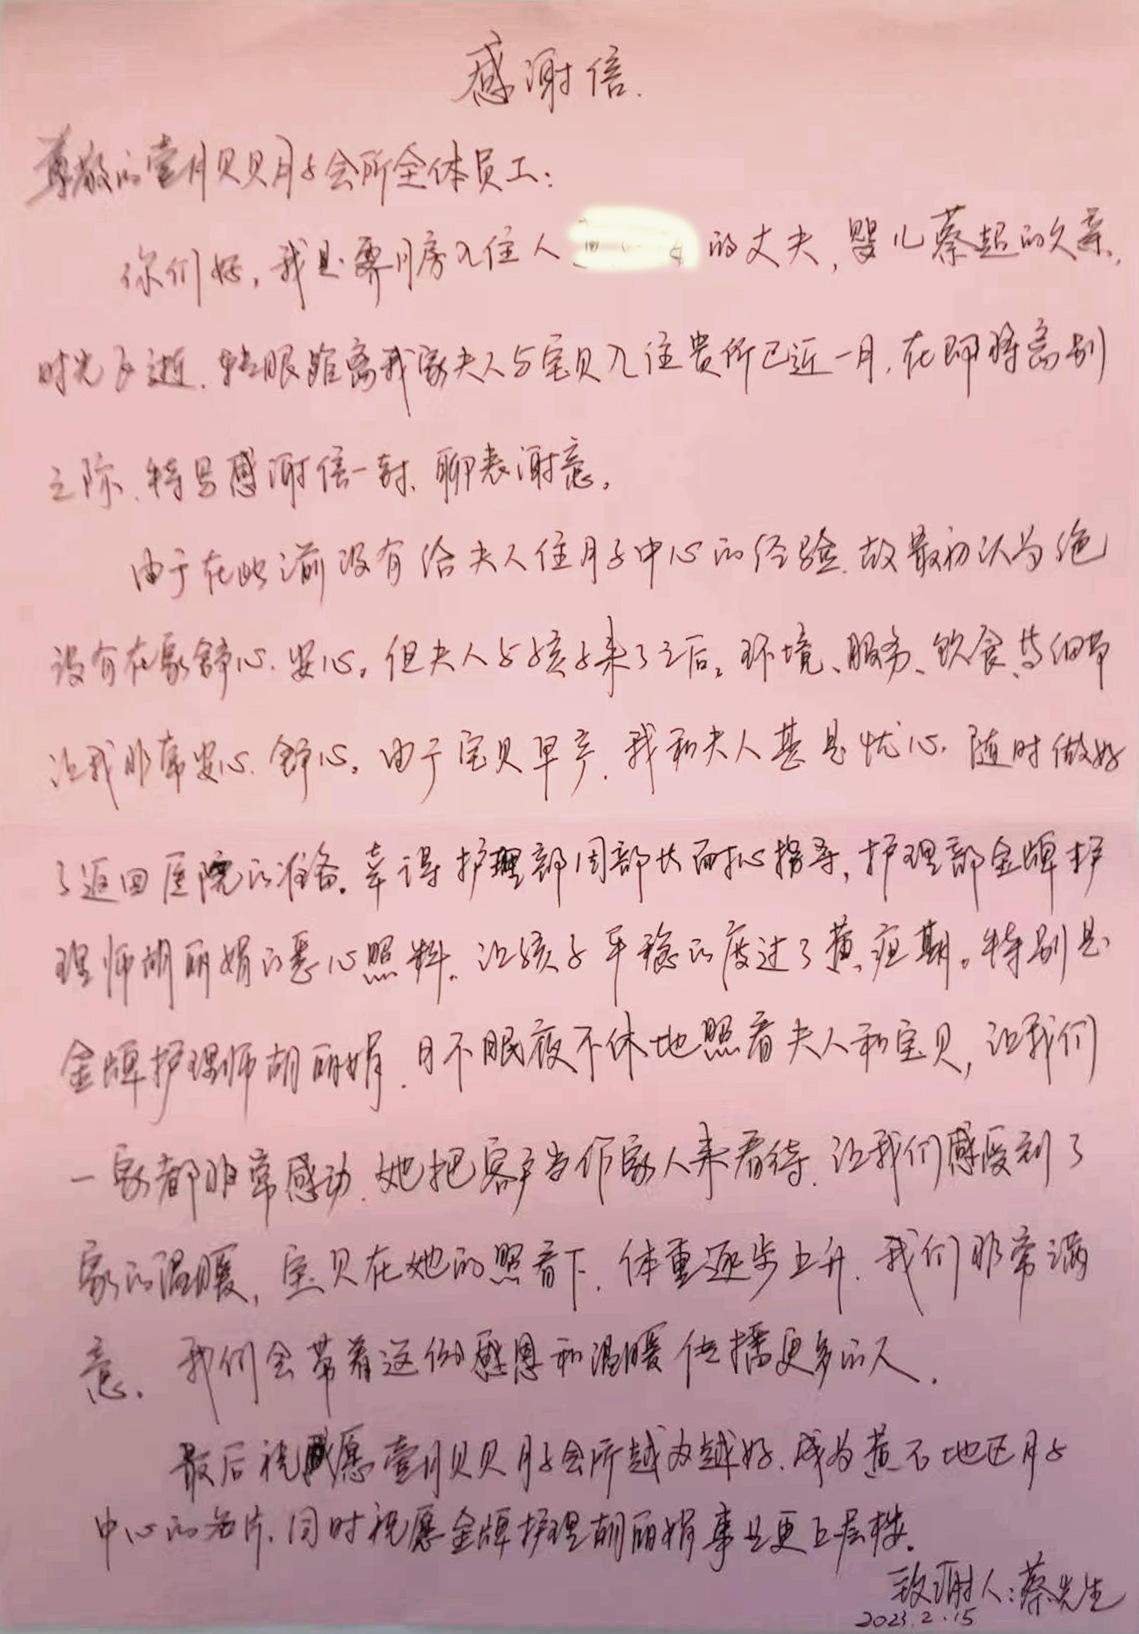 感谢信.
尊敬的壹月贝贝月子会所全体员工:
你们好,我是霁月房入住人 的丈夫,婴儿蔡超的父亲,
时光飞逝、转眼距离我家夫人与宝贝入住贵所已近一月,在即将离别
之际、特写感谢信一封、聊表谢意。
由于在此之前没有给夫人住月子中心的经验、故最初认为绝
没有在家舒心、安心。但夫人与孩子来了之后。环境、服务、饮食、等细节
让我非常安心、舒心。由于宝贝早产、我和夫人甚是忧心、随时做好
了返回医院的准备。幸得护理部周部长耐心指导,护理部金牌护
理师胡丽娟的悉心照料、让孩子平稳的度过了黄疸期。特别是
金牌护理师胡丽娟、日不眠夜不休地照看夫人和宝贝,让我们
一家都非常感动、她把客户当作家人来看待、让我们感受到了
家的温暖,宝贝在她的照看下、体重逐步上升、我们非常满
意。我们会带着这份感恩和温暖传播更多的人.
最后祝愿壹月贝贝月子会所越办越好、成为黄石地区月子
中心的名片、同时祝愿金牌护理胡丽娟事业更上层楼。
致谢人:蔡先生
2023.2.15